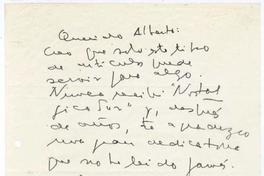 Querido Alberto:
Creo que solo este tipo
de artículos puede
servir para algo.
Nunca recibí "Nostál
gico Sur" y, después
de años, te agradezco
una gran dedicatoria
que no he leído jamás.